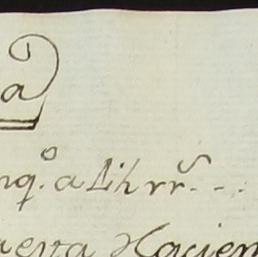 a
nq.º a Lih rr.s - -
ueva Hacien